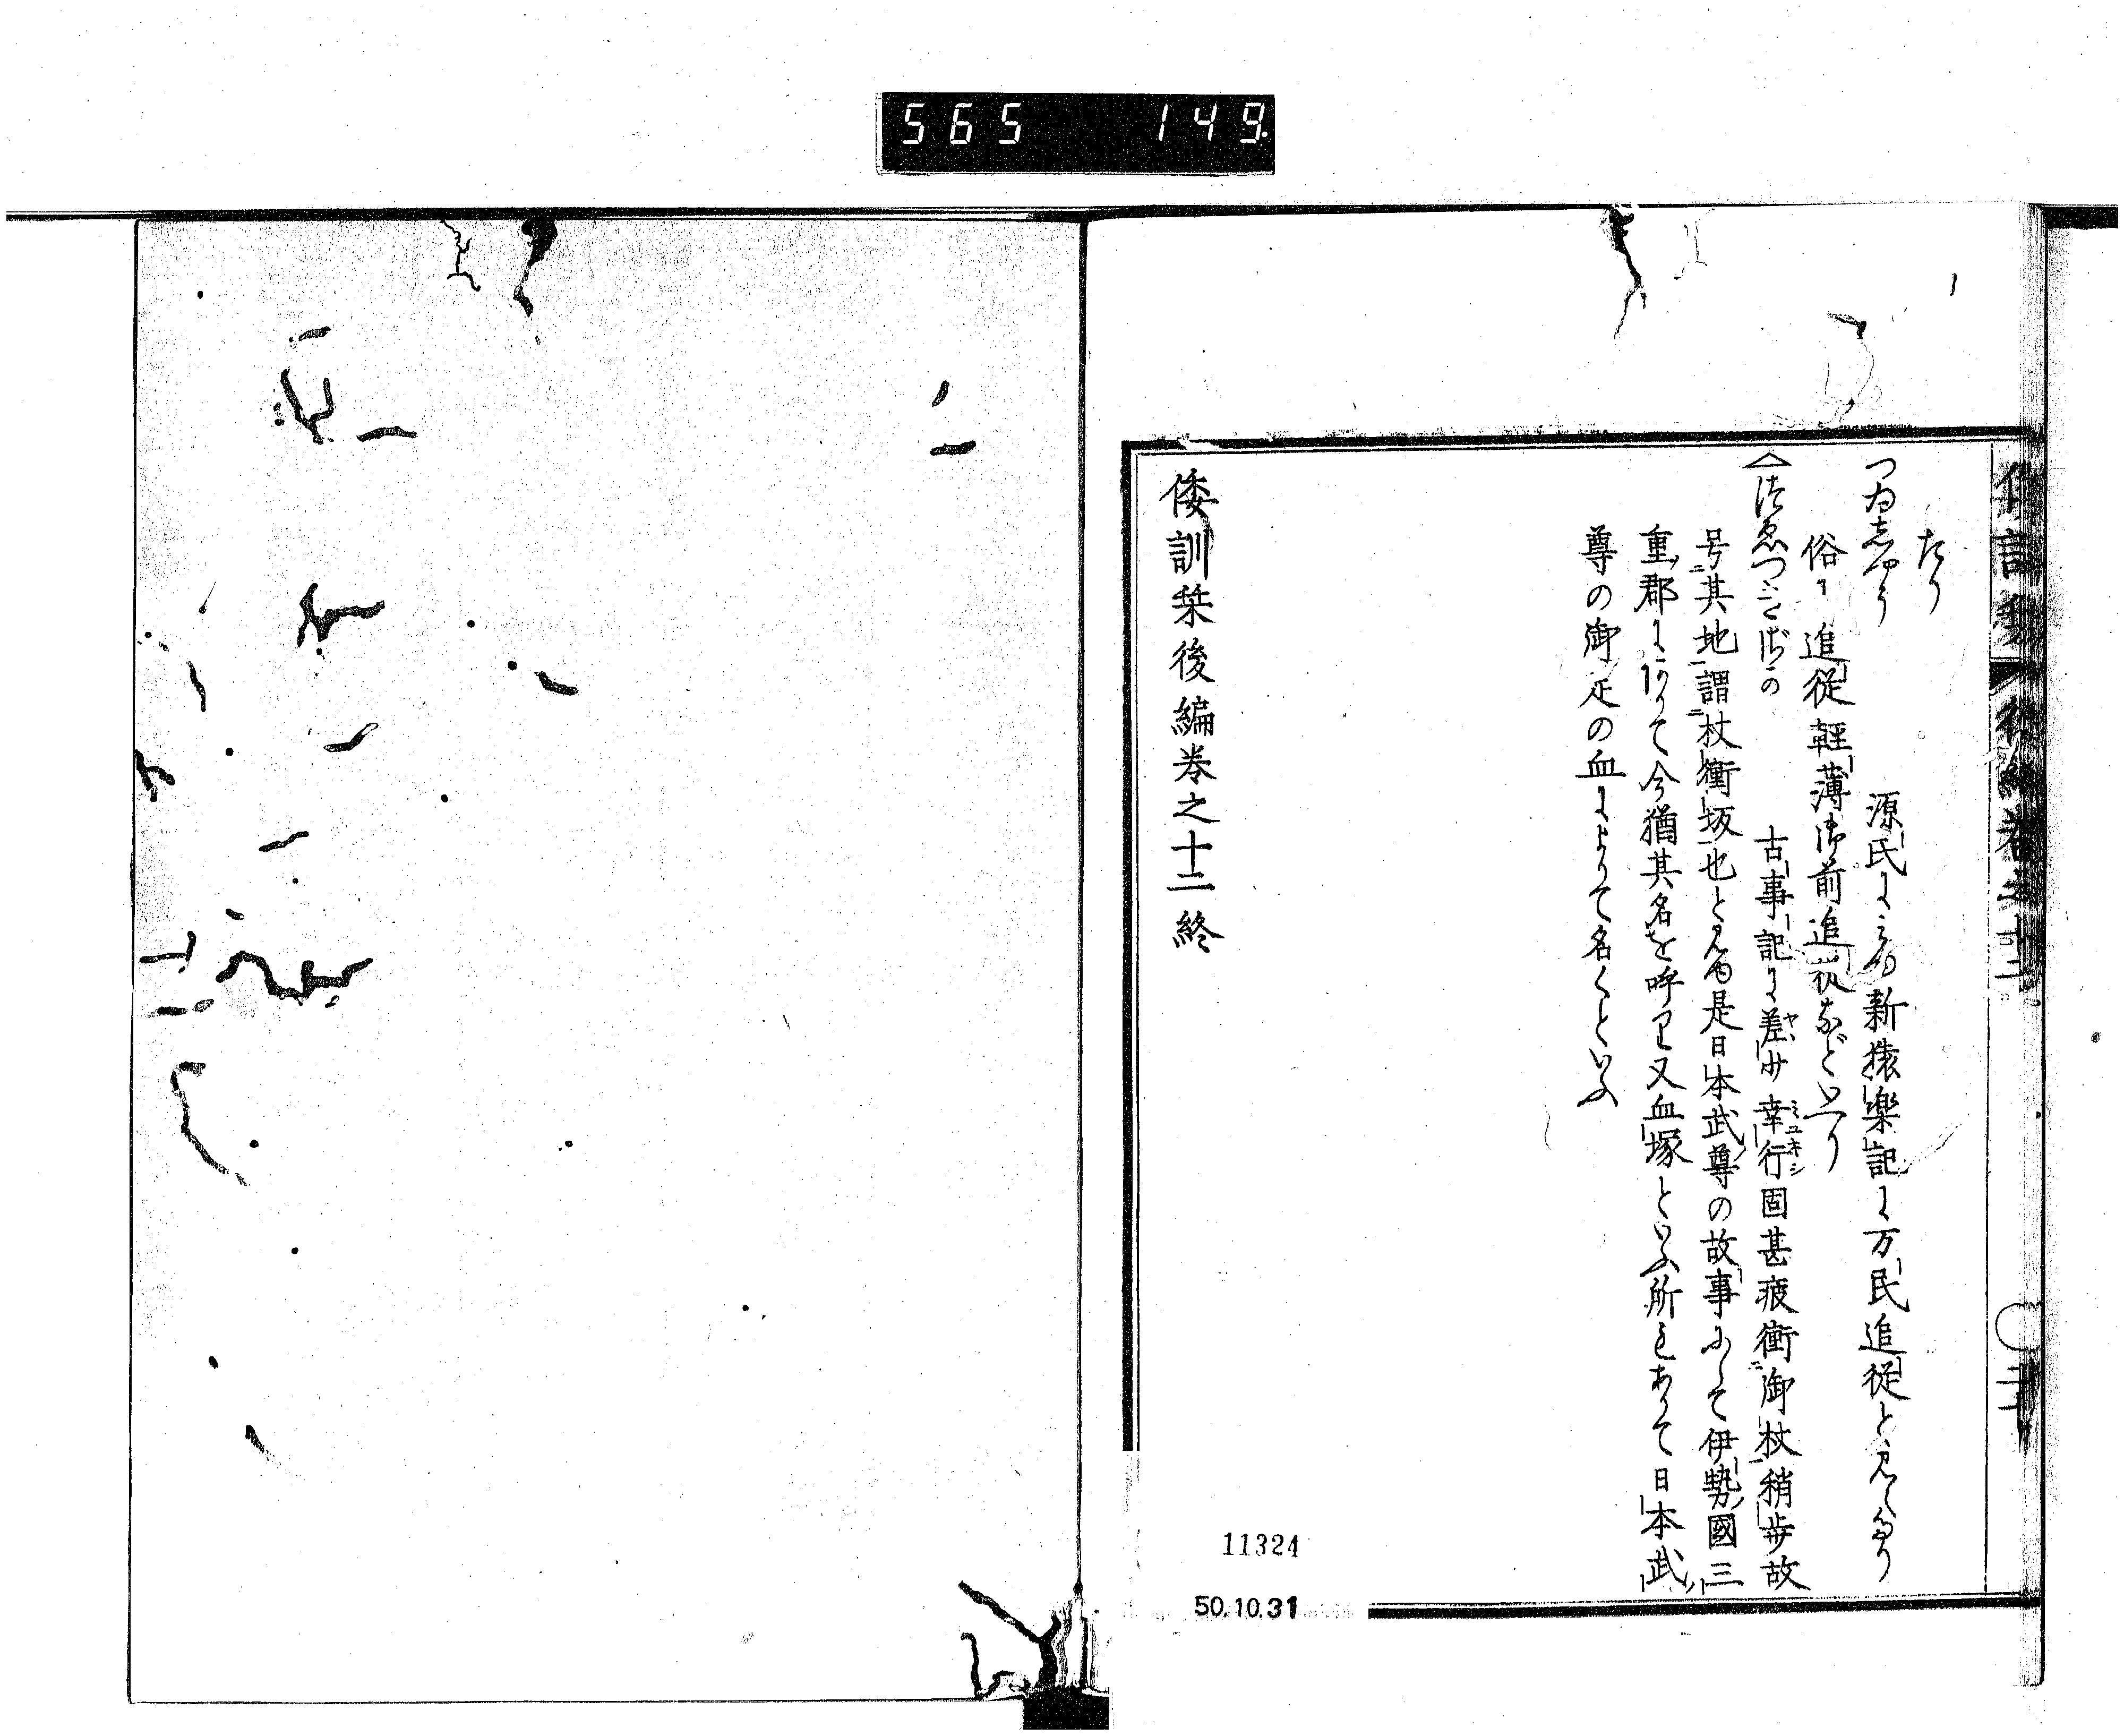 565 149
倭訓栞 後編巻之十二 ○二十二
たり
つゐしやう 源氏にみゆ新猿楽記に万民追従と見えたり
俗に追従軽薄御前追従などいへり
つゑつきざか 古事記に差少幸行因甚疲衝御杖稍歩故
号其地謂杖衝坂也と見ゆ是日本武尊の故事にして伊勢國三
重郡にありて今猶其名を呼り又血塚といふ所もありて日本武
尊の御足の血によりて名くといふ
倭訓栞後編巻之十二終
11324
50.10.31